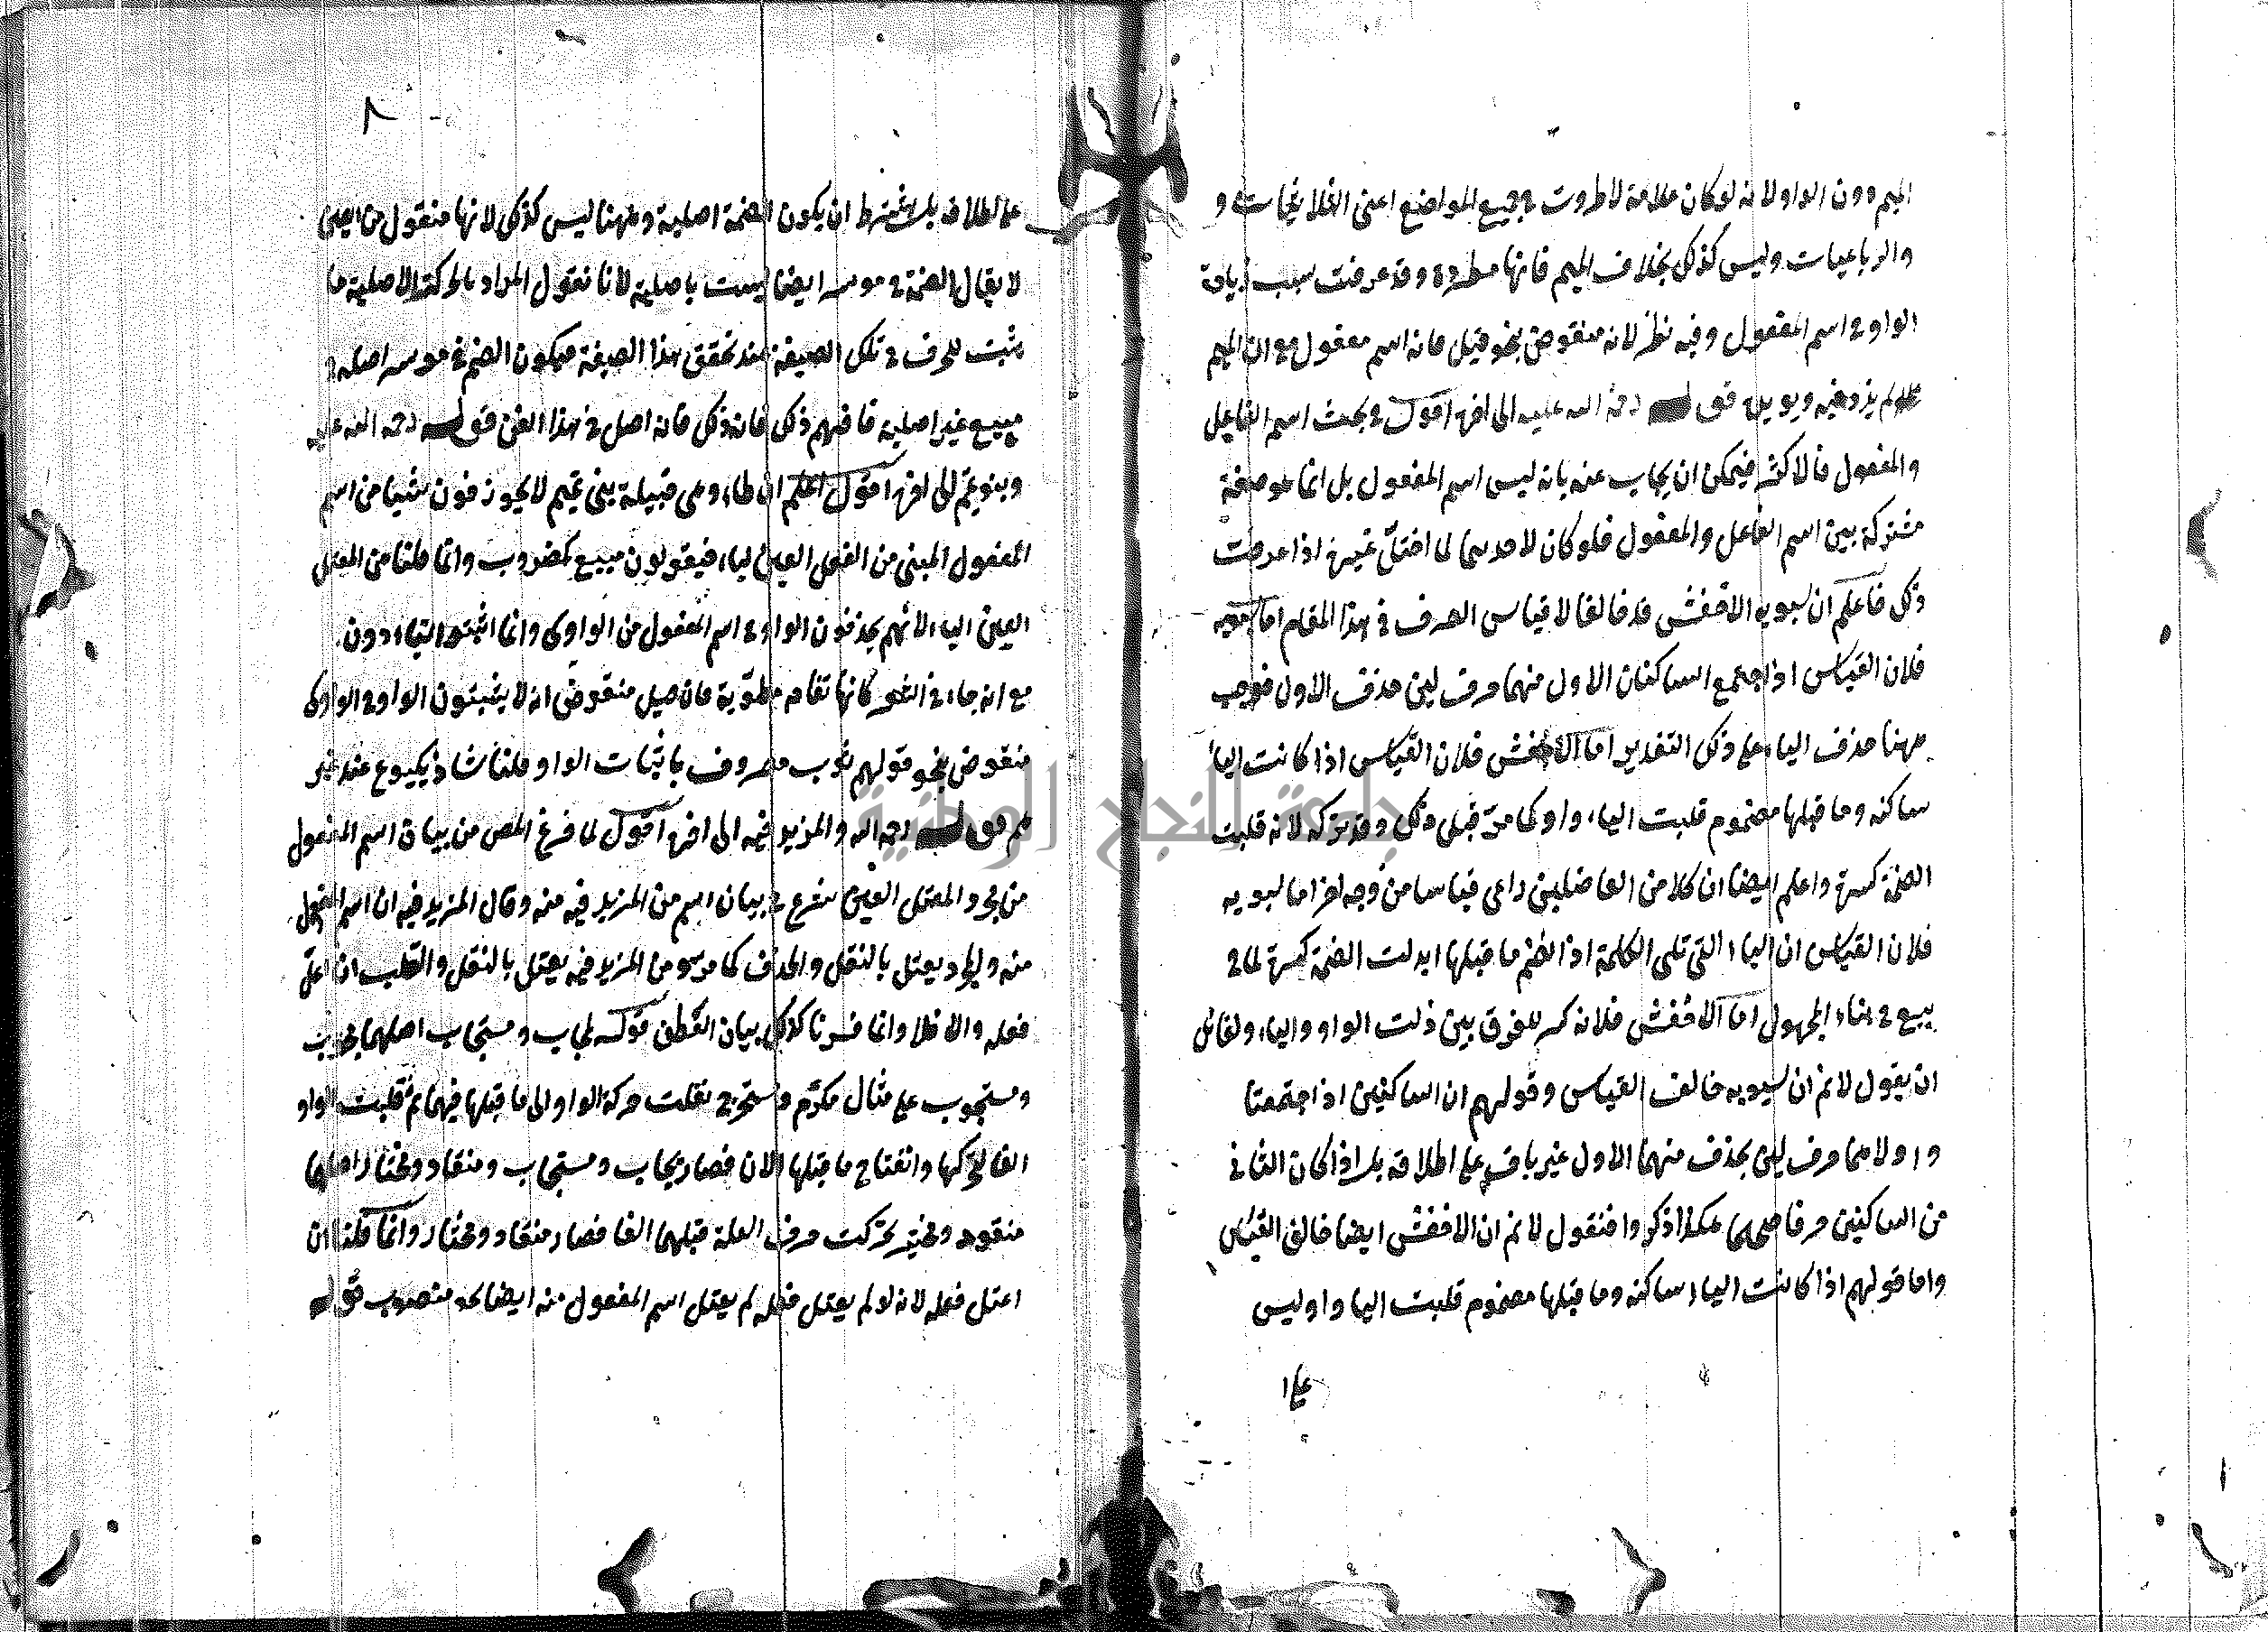 الميم دون الواو لانه لو كان علامة لاطردت في جميع المواضع اعنى الثلاثيات و
والرباعيات وليس كذلك بخلاف الميم فانها مطردة وقد عرفت سبب زيادة
الواو في اسم المفعول وفيه نظر لانه منقوض بنحو قتيل فانه اسم مفعول مع ان الميم
لم يزد فيه قوله رحمة الله عليه الى اخره اقول في بحث اسم الفاعل
والمفعول فالاكثر فيمكن ان يجاب عنه بانه ليس اسم المفعول بل انما هو صفة
مشتركة بين اسم الفاعل والمفعول فلو كان لاحدهما لما اختل اذا عرفت
ذلك فاعلم ان سبويه الاخفش قد خالفا لاقياس الصرف في هذا المقام اما سبويه
فلان القياس اذا اجتمع الساكنان الاول منهما حرف لين حذف الاول فوجب
ههنا حذف الياء على ذلك التقدير اما الاخفش فلان القياس اذا كانت الياء
ساكنه وما قبلها مضموم قلبت الياء واو كما مر قبل ذلك وقد تركه لانه قلبت
الضمة كسرة واعلم ايضا ان كلا من الفاضلين راعى قياسا من وجه اخر اما سبويه
فلان القياس ان الياء التى تلى الكلمة اذا انضم ما قبلها ابدلت الضمة كسرة كما في
بيع في بناء المجهول اما الاخفش فلانه كسر للفرق بين ذات الواو والياء ولقائل
ان يقول لانم ان سيبويه خالف القياس وقولهم ان الساكنين اذا اجتمعتا
و اولاهما حرف لين بحذف منهما الاول غير باق على اطلاقه بل اذا كان الثانى
من الساكنين حرفا صحيحا هكذا ذكروا فنقول لانم ان الاخفش ايضا خالف القياس
واما قولهم اذا كانت الياء ساكنه وما قبلها مضموم قلبت اليا واو ليس
على ا
٨
على اطلاقه بل يشترط ان يكون الضمة اصلية وههنا ليس كذلك لانها منقول من العين
لا يقال الضمة في موسر ايضا ليست باصلية لانا نقول المراد بالحركة الاصلية ما
يثبت للحرف في تلك الصيغة عند تحقق هذا الصيغة فيكون الضم في موسر اصلية و
مبيع غير اصلية فافهم ذلك فانه ذلك فانه اصل في هذا الفن قوله رحمة الله عليه
وبنو تميم الى اخره اقول اعلم ان طاء وهى قبيلة بنى تميم لا يحوذفون شيئا من اسم
المفعول المبنى من الفعل العين لياء فيقولون مبيع كمضروب وانما قلنا من المعتل
العين الياء لانهم يحذفون الواو في اسم المفعول من الواوى وانما اثبتو الياء دون
مع انه جاء في الشعر كانها تفاحه مطيوبة فان قيل منقوض انه لا يثبتون الواو في الواوى
منقوض بنحو قولهم ثوب مصووف باثبات الواو قلنا شاذ كيبوع عند غير
هم قوله رحمه الله والمزيد فيه الى اخره اقول لما فرغ المص من بيان اسم المفعول
من مجرد المعتل العين شرع في بيان اسم من المزيد فيه منه وقال المزيد فيه ان اسم المفعول
منه والمجرد يعتل بالنقل والحذف كما مر ومن المزيد فيه يعتل بالنقل والقلب ان اعتل
فعله والا فلا وانما فسرنا كذلك بيان قوله مجاب و مستجاب اصلهما مجوب
ومستجوب على مثال مكرم ومستخرج نقلت حركة الواو الى ما قبلها فيهما ثم قلبت الواو
الفا لتحركها وانفتاح ما قبلها الان فصار مجاب ومستجاب ومنقاد ومختار اصلهما
منقود ومختير تحركت حرف العلة قبلهما الفا فصار منقاد ومختار وانما قلنا ان
اعتل فعله لانه لو لم يعتل فعله لم يعتل اسم المفعول منه ايضا منصوب قوله
جامعة النجاح الوطنية